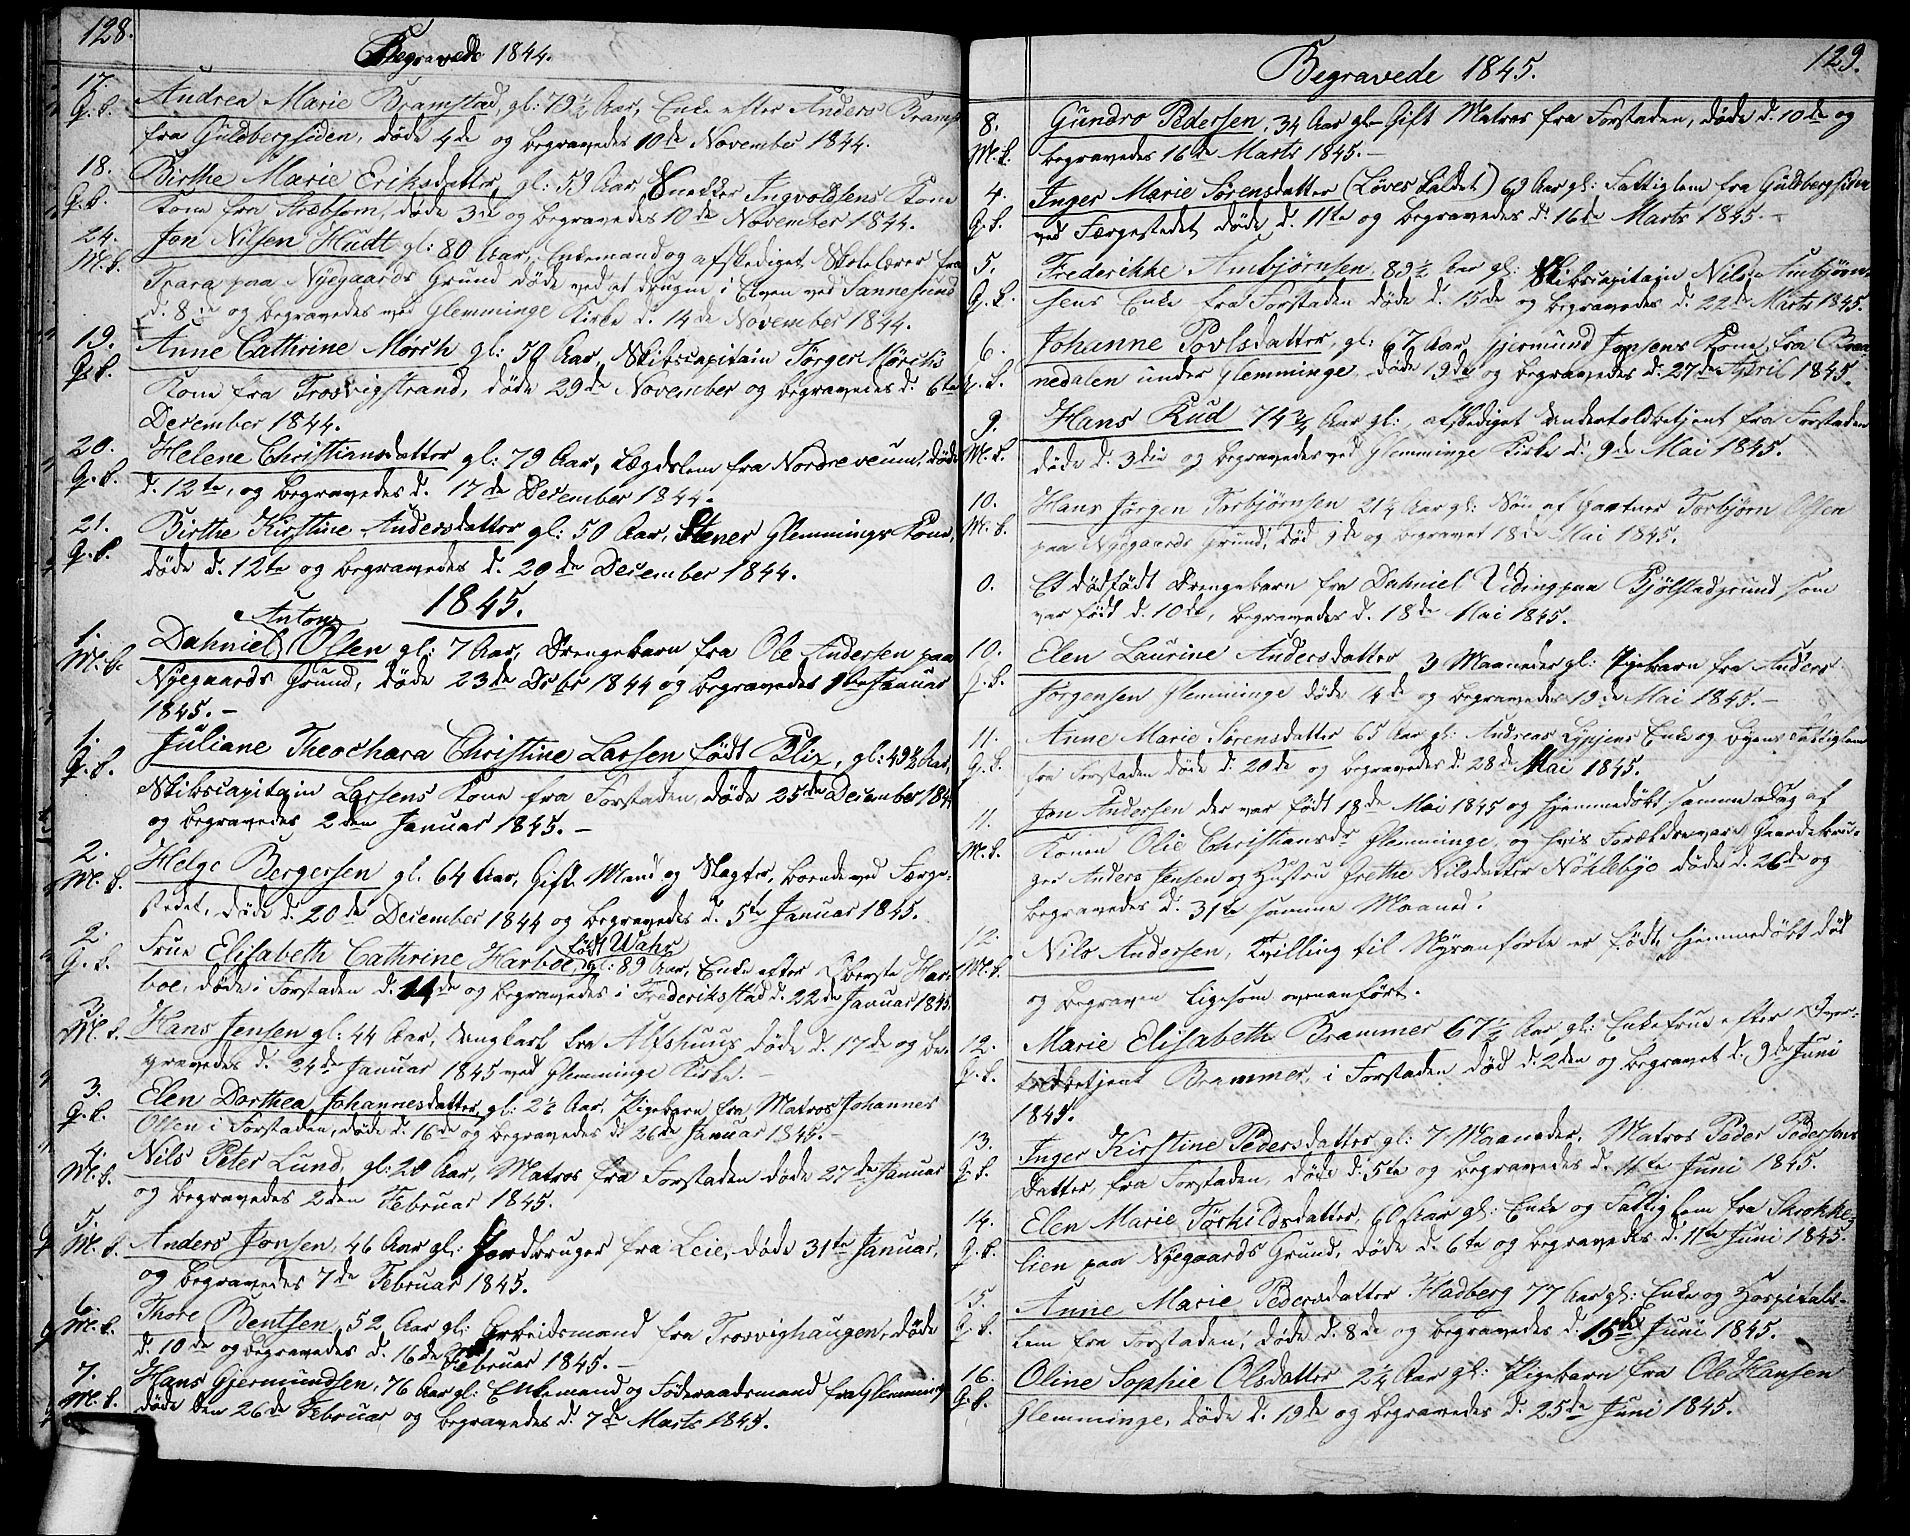 128.
Begravede 1844.
17. Andrea Marie Bramstad, gl: 79½ Aar, Enke efter Anders Bramst
Q. K. fra Guldbergsiden, døde 4de og begravedes 10de November 1844.
18. Birthe Marie Eriksdatter gl: 59 Aar, Snekker Ingvoldsens Kone
Q. K. Kone fra døde 3die og begravedes 10de November 1844.
24. Jon Nilsen Hudt gl: 80 Aar, Enkemand og afskediget Skolelærer fra
M. K. Trara paa Nyegaards Grund døde ved at drugne i Elven ved Sannesund
d. 8de og begravedes ved Glemminge Kirke d. 14de November 1844.
19. Anne Cathrine Mørch gl: 59 Aar, Skibscapitain Jørger Mørchs
Q. K. Kone fra Trosvigstrand, døde 29de November og begravedes d. 6te
December 1844.
20. Helene Christiansdatter gl: 79 Aar, Lægdslem fra Nordre Veum, døde
Q. K. d. 12te, og begravedes d. 17de December 1844.
21. Birthe Kirstine Andersdatter gl: 50 Aar, Stener Glemmings Kone,
Q. K. døde d. 12te og begravedes d. 20de December 1844.
1845.
Anton
1. Dahniel Olsen gl: 7 Aar, Drengebarn fra Ole Andersen paa
M. K. Nyegaards Grund, døde 23de Dcbr 1844 og begravedes 1ste Januar
1845.-
1. Juliane Theochara Christine Larsen født Blix, gl: 49½ Aar,
Q. K. Skibscapitain Larsens Kone fra Forstaden, døde 25de December 1844
og begravedes 2den Januar 1845.-
2. Helge Bergersen gl. 64 Aar, Gift Mand og Slagter, boende ved Færge-
M. K. stedet, døde d. 20de December 1844 og begravedes d. 5te Januar 1845.
født Wahr
2. Frue Elisabeth Cathrine Harboe, gl: 89 Aar, Enke efter Oberste Har-
Q. K. boe, døde i Forstaden d. 14de og begravedes i Frederikstad d. 22de Januar 1845.
3. Hans Jensen gl: 44 Aar, Ungkarl fra Altshuus døde d. 17de og be-
M. K. gravedes d. 24de Januar 1845 ved Glemminge Kirke.-
3. Elen Dorthea Johannesdatter, gl: 2½ Aar, Pigebarn fra Matros Johannes
Q. K. Olsen i Forstaden, døde d. 16de og begravedes d. 26de Januar 1845.-
4. Nils Peter Lund, gl: 28 Aar, Matros fra Forstaden døde 27de Januar
M. K. og begravedes 2den Februar 1845.
5. Anders Jonsen, 46 Aar gl: Jordbruger fra Leie, døde 31te Januar,
M. K. og begravedes 7de Februar 1845.
6. Thore Bentsen, 52 Aar gl: Arbeidsmand fra Trosvighaugen, døde
M. K. d. 10de og begravedes d. 16de Februar 1845.-
7. Hans Gjermundsen, 76 Aar gl: Enkemand og Føderaadsmand fra Glemminge
M. K. døde den 26de Februar og begravedes d. 7de Marts 1845.
129.
Begravede 1845.
8. Gundro Pedersen, 34 Aar gl- Gift Matros fra Forstaden, døde d. 10de og
M. K. begravedes 16de Marts 1845.-
4. Inger Marie Sørensdatter (Løves kaldet) 69 Aar gl: Fattiglem fra Guldbergsiden
Q. K. ved Færgestedet døde d. 11te og begravedes d. 16de Marts 1845.-
5. Frederikke Ambjørnsen, 89½ Aar gl: Skibscapitain Nils Ambjørn-
Q. K. sens Enke fra Forstaden døde d. 15de og begravedes d. 22de Marts 1845.
6. Johanne Povlsdatter, gl: 67 Aar, Gjermund Jonsens Kone, fra
Q. K. nedalen under Glemminge, døde 19de og begravedes d. 27de April 1845.
9. Hans Rud 74¾ Aar gl:, afskediget Undertoldbetjent fra Forstaden
M. K. døde d. 3die og begravedes ved Glemminge Kirke d. 9de Mai 1845.
10. Hans Jørgen Torbjørnsen 21½ Aar gl: Søn af Gartner Torbjørn Olsen
M. K. paa Nyegaards Grund, død 9de og begravet 18de Mai 1845.
0. Et dødfødt Drengebarn fra Dahniel Viding paa Bjølstadgrund, som
var født d. 10de, begravedes d. 18de Mai 1845.
10. Elen Laurine Andersdatter 3 Maaneder gl: Pigebarn fra Anders
Q. K. Jørgensen Glemminge døde 4de og begravedes 19de Mai 1845.-
11. Anne Marie Sørensdatter 65 Aar gl: Andreas Enke og Byens Fattiglem
Q. K. fra Forstaden døde d. 20de og begravedes d. 28de Mai 1845.
11. Jon Andersen der var født 18de Mai 1845 og hjemmedøbt samme Dag af
M. K. Konen Olie Christiansdr Glemminge, og hvis Forældre var Gaardebru-
ger Anders Jensen og Hustru Grethe Nilsdatter Nøhlebye døde d. 26de og
begravedes d. 31te samme Maaned.
12. Nils Andersen, Tvilling til Nysanførte er født, hjemmedøbt død
M. K. og begraven ligesom ovenanført.
12. Marie Elisabeth Brammer 67½ Aar gl: Enkefrue efter Over-
Q. K. toldbetjent Brammer, i Forstaden død d. 2den og begravet d. 9de Juni
1845.
13. Inger Kirstine Pedersdatter gl: 7 Maaneder. Matros Peder Pedersens
Q. K. Datter, fra Forstaden, døde d. 5te og begravedes d. 11te Juni 1845.
14. Elen Marie Torkildsdatter, 60 Aar gl: Enke og Fattiglem fra Skrokke-
Q. K. lien paa Nyegaards Grund, døde d. 6te og begravedes d. 11te Juni 1845.
15. Anne Marie Pedersdatter Fladberg 77 Aar gl: Enke og Hospitals-
Q. K. lem fra Forstaden, døde d. 8de og begravedes d. 15de Juni 1845.
16. Oline Sophie Olsdatter 2¼ Aar gl: Pigebarn fra Ole Hansen
Q. K. Glemminge, døde d. 19de og begravedes d. 25de Juni 1845.